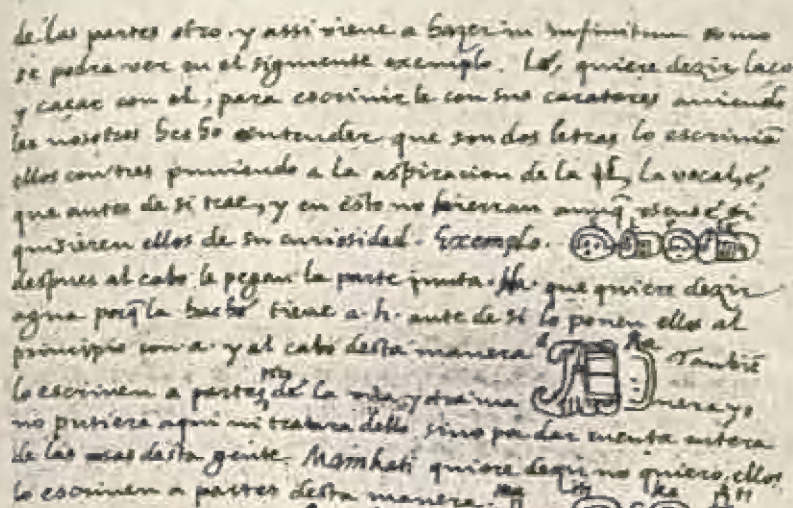 de las partes otro, y assi viene a hazer in infinitum como
se podra ver en el siguiente exemplo. Lé, quiere dezir laço
y caçar con el, para escriuirle con sus carateres auiendo
les nosotros hecho entender que son dos letras lo escriuiã
ellos con tres puniendo a la aspiracion de la l, la vocal, é,
que antes de si trae, y en esto no hierran aunq̃
quisieren ellos de su curiosidad. Exemplo.
despues al cabo le pegan la parte junta. Ha. que quiere dezir
agua porq̃ la hache tiene a. h. ante de si lo ponen ellos al
principio con a. y al cabo desta manera a ha Tambiẽ
lo escriuen a partes de la vna y otra ma nera yo
no pusiera aqui ni tratara dello sino por dar cuenta entera
de las cosas desta gente. Mainkati quiere dezir no quiero, ellos
lo escriuen a partes desta manera. ma i